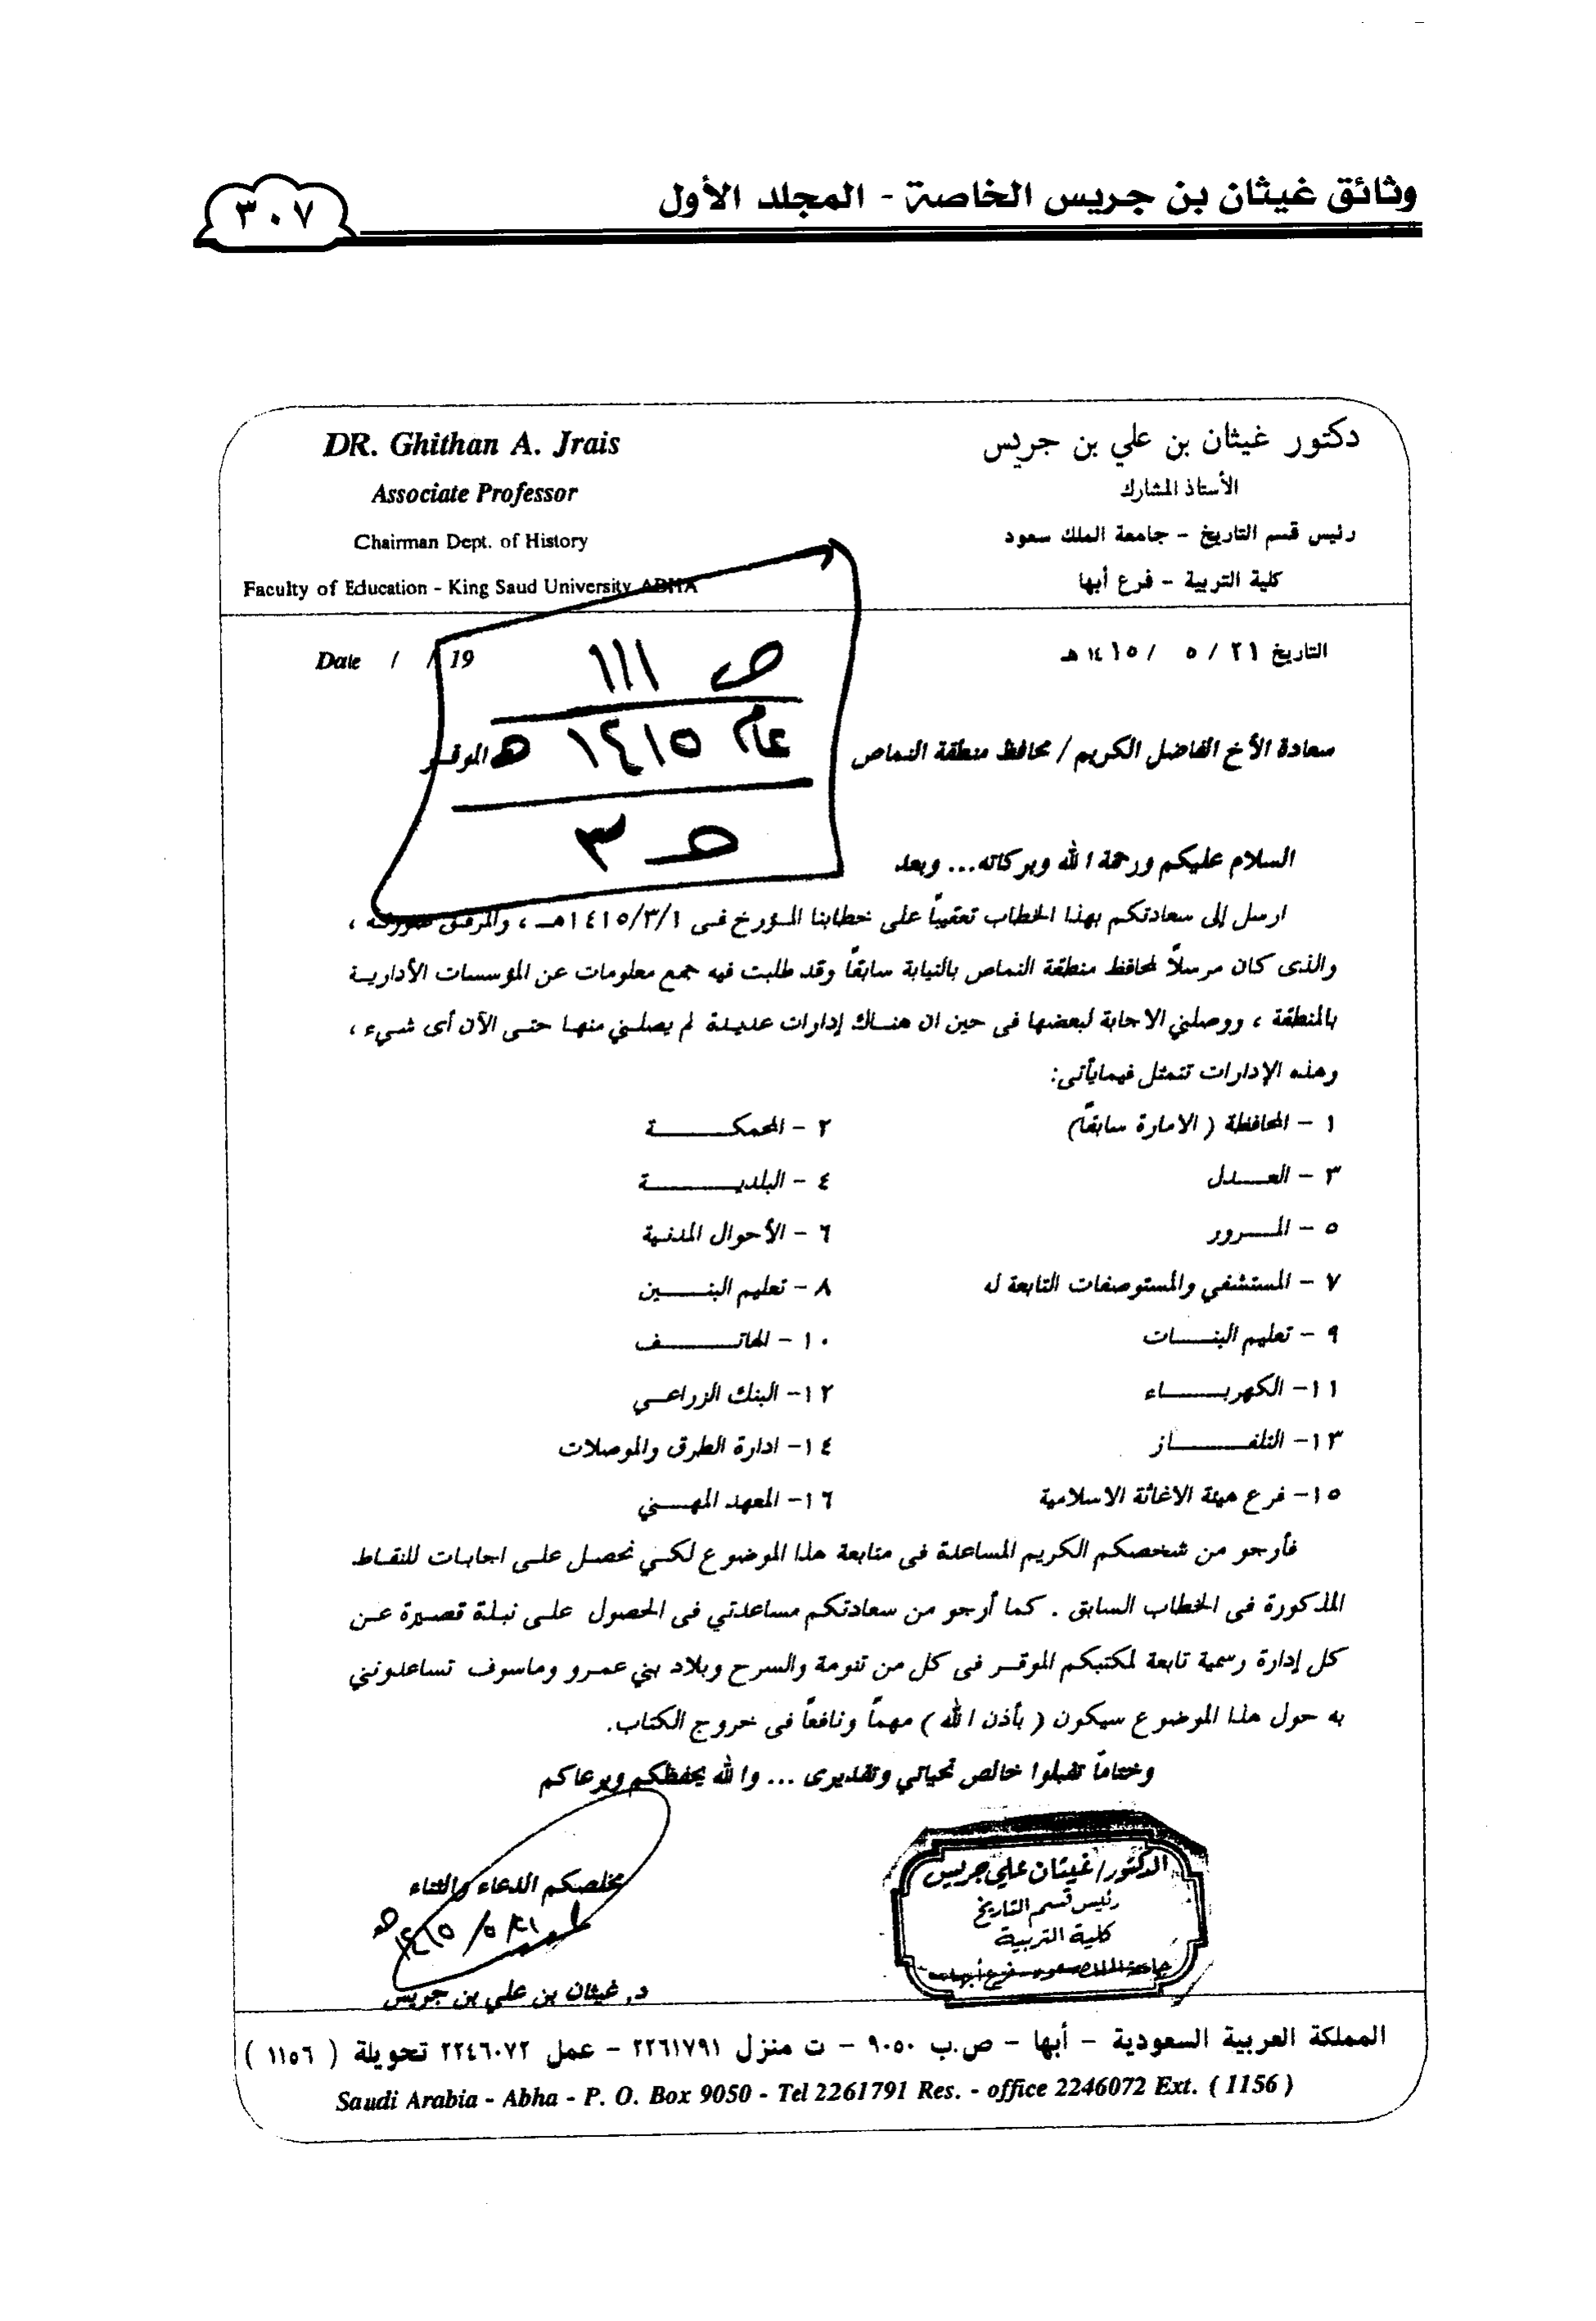 وثائق غيثان بن جريس الخاصة - المجلد الأول
٣٠٧
دكتور غيثان بن علي بن جريس
الأستاذ المشارك
رئيس قسم التاريخ - جامعة الملك سعود
كلية التربية - فرع أبها
DR. Ghithan A. Jrais
Associate Professor
Chairman Dept. of History
Faculty of Education - King Saud University ABHA
التاريخ ٢١ / ٥ / ١٤١٥ هـ
Date / / 19
ص ١١١
عام ١٤١٥ هـ
حـ ٣
سعادة الأخ الفاضل الكريم / محافظ منطقة النماص الموقـر
السلام عليكم ورحمة الله وبركاته... وبعد
ارسل إلى سعادتكم بهذا الخطاب تعقيباً على خطابنا المؤرخ فى ١٤١٥/٣/١هـ ، والمرفق صورته ،
والذى كان مرسلاً لمحافظ منطقة النماص بالنيابة سابقاً وقد طلبت فيه جمع معلومات عن المؤسسات الأدارية
بالمنطقة ، ووصلني الاجابة لبعضها فى حين ان هناك إدارات عديدة لم يصلني منها حتى الآن أى شيء ،
وهذه الإدارات تتمثل فيمايأتى:
١ - المحافظة ( الامارة سابقاً) ٢ - المحمكـــة
٣ - العـــدل ٤ - البلديـــة
٥ - المـــرور ٦ - الأحوال المدنية
٧ - المستشفي والمستوصفات التابعة له ٨ - تعليم البنـــين
٩ - تعليم البنـــات ١٠ - الهاتـــف
١١- الكهربـــاء ١٢- البنك الزراعـي
١٣- التلفـــاز ١٤- ادارة الطرق والموصلات
١٥- فرع هيئة الاغاثة الاسلامية ١٦- المعهد المهـــني
فأرجو من شخصكم الكريم المساعدة فى متابعة هذا الموضوع لكي نحصل على اجابات للنقاط
المذكورة فى الخطاب السابق . كما أرجو من سعادتكم مساعدتي فى الحصول على نبذة قصيرة عن
كل إدارة رسمية تابعة لمكتبكم الموقر فى كل من تنومة والسرح وبلاد بني عمرو وماسوف تساعدونني
به حول هذا الموضوع سيكون ( بأذن الله ) مهماً ونافعاً فى خروج الكتاب.
وختاماً تقبلوا خالص تحياتي وتقديرى ... والله يحفظكم ويرعاكم
مخلصكم الدعاء والثناء
١٤١٥/٥/٢١ هـ
د. غيثان بن علي بن جريس
الدكتور/غيثان علي جريس
رئيس قسم التاريخ
كلية التربية
جامعة الملك سعود - فرع أبها
المملكة العربية السعودية - أبها - ص.ب ٩٠٥٠ - ت منزل ٢٢٦١٧٩١ - عمل ٢٢٤٦٠٧٢ تحويلة ( ١١٥٦ )
Saudi Arabia - Abha - P. O. Box 9050 - Tel 2261791 Res. - office 2246072 Ext. ( 1156 )